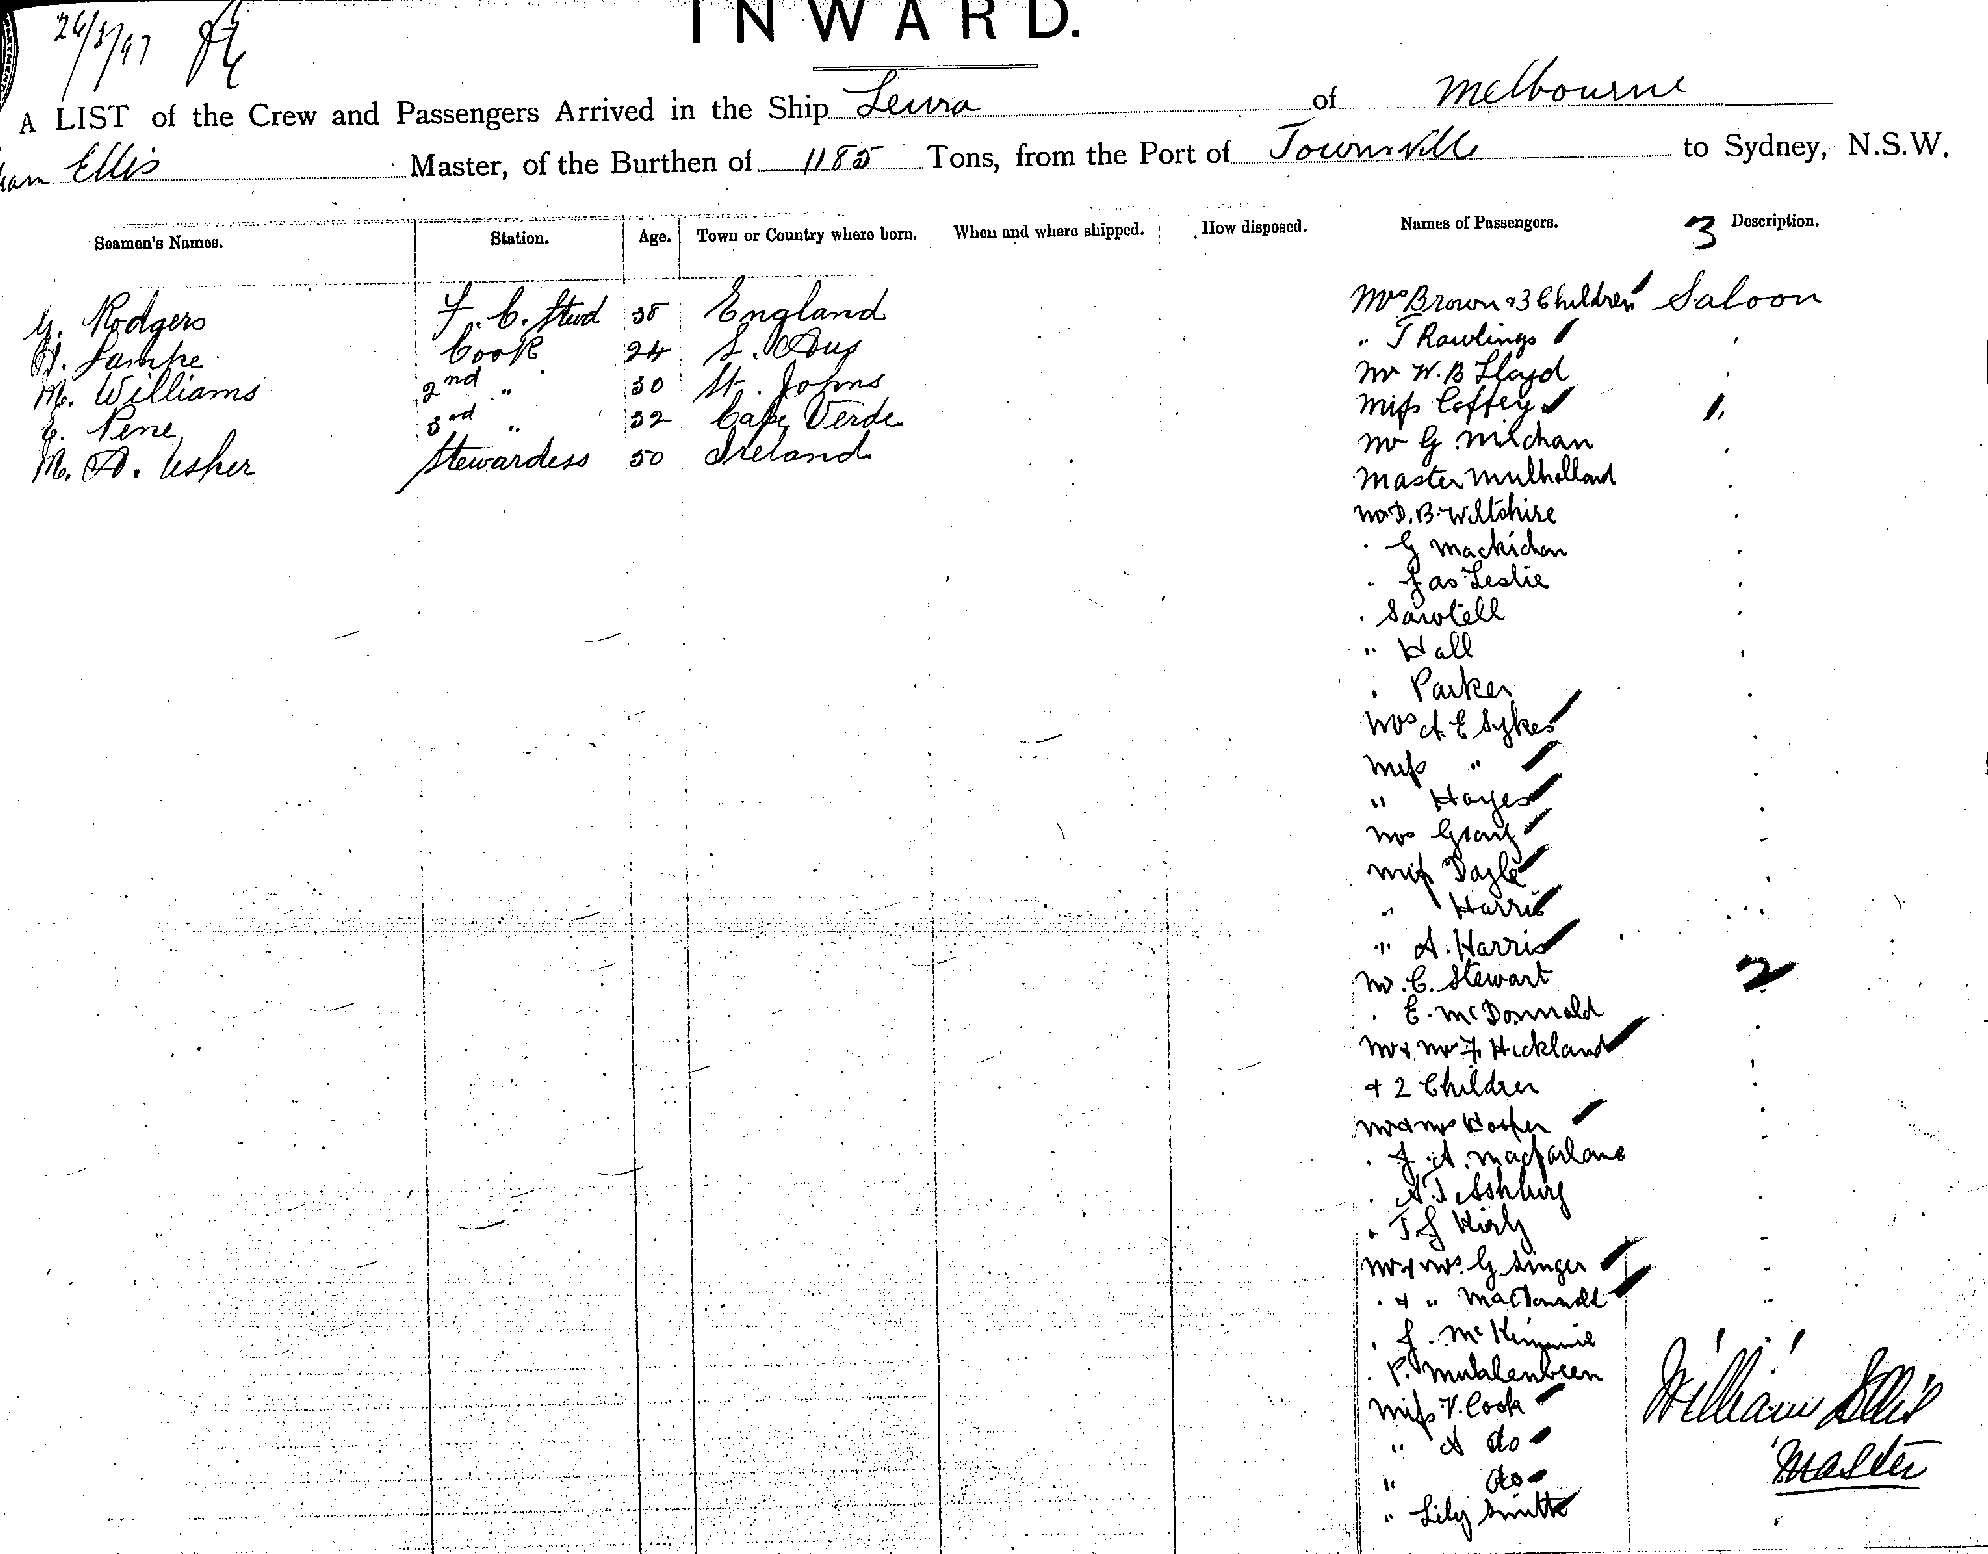 26/3/97
INWARD.
A LIST of the Crew and Passengers Arrived in the Ship Leura of Melbourne
Ellis Master, of the Burthen of 1185 Tons, from the Port of Townsville to Sydney, N.S.W.
Seamen's Names. Station. Age. Town or Country where born. When and where shipped. How disposed. Names of Passengers. 3 Description.
G. Rodgers F. C. Stwd 38 England
H. Lampe Cook 24 S. Aus
M. Williams 2nd " 30 St. Johns
E. Pene 3rd " 32 Cape Verde
M. A. Usher Stewardess 50 Ireland
Mrs Brown & 3 Children Saloon
" T Rawlings
Mr W. B Lloyd
Miss Coffey 1.
Mr G.
Master Mulholland
Mr D. B. Wiltshire
. G Mackichan
. Jas Leslie
. Sawtell
" Hall
. Parker
Mrs A E Sykes
Miss "
" Hayes
Mrs Grant
Miss
" Harris
" A. Harris
Mr. C. Stewart 2
. E. McDonnald
Mr & Mrs F. Hickland
& 2 Children
Mr & Mrs Hooper
. J. A. Macfarlane
. A. T. Ashbury
. T J Kirby
Mr & Mrs. G Singer
. & " MacDonnell
. J. McKimmie
. P.
Miss V. Cook
" A do
" do
" Lily Smith
William Ellis
Master